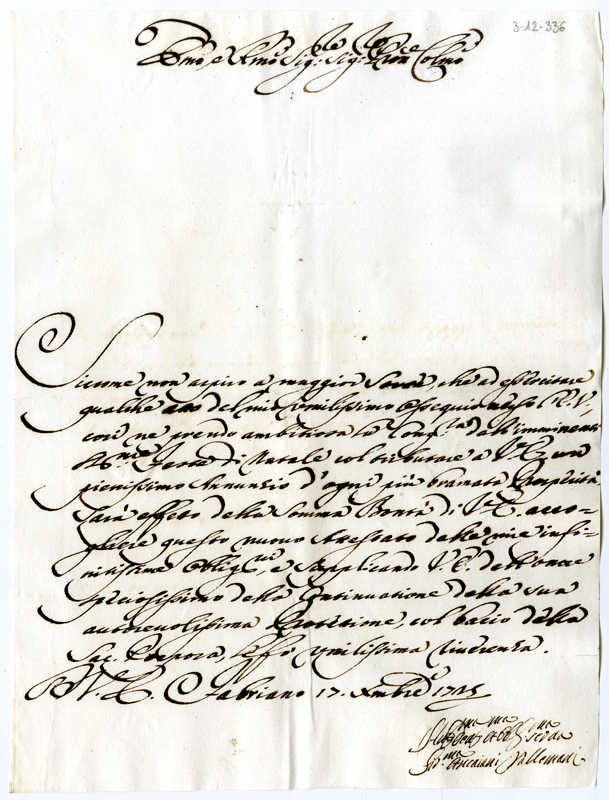 3-12-336
Emo, e Rmo Sig.re Sig.re Pron Colmo
Siccome non aspiro a maggior Sorte, che ad essercitare
qualche atto del mio umilissimo Ossequio verso l'E. V.,
così ne prendo ambiziosa la dall'imminenti
SS.me Feste di Natale col tributare a V. E. un
pienissimo Annunzio d'ogni più bramata Prosperità.
Sarà effetto della Somma Bontà di V. E. acco-
gliere questo nuovo Attestato delle mie infi-
nitissime Oblig.ni, e Supplicando V. E. dell'onore
speciosissimo della Continuatione della sua
autorevolissima Protetione, col bacio della
Sac. Porpora, le fo umilissima riverenza.
D. V. E. Fabriano 17. Xmbre 1745
Vallemani